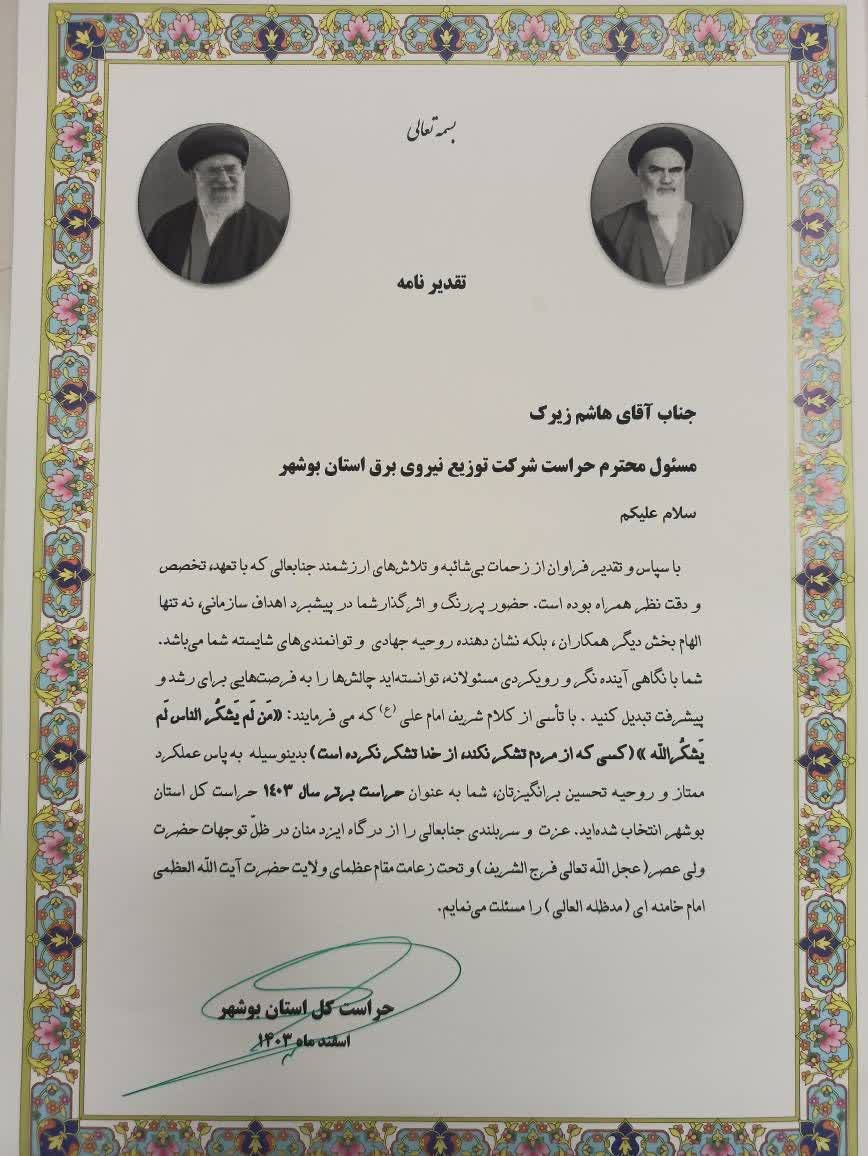 بسمه تعالی
تقدیر نامه
جناب آقای هاشم زیرک
مسئول محترم حراست شرکت توزیع نیروی برق استان بوشهر
سلام علیکم
با سپاس و تقدیر فراوان از زحمات بی‌شائبه و تلاش‌های ارزشمند جنابعالی که با تعهد، تخصص
و دقت نظر همراه بوده است. حضور پررنگ و اثرگذار شما در پیشبرد اهداف سازمانی، نه تنها
الهام بخش دیگر همکاران ، بلکه نشان دهنده روحیه جهادی و توانمندی‌های شایسته شما می‌باشد.
شما با نگاهی آینده نگر و رویکردی مسئولانه، توانسته‌اید چالش‌ها را به فرصت‌هایی برای رشد و
پیشرفت تبدیل کنید . با تأسی از کلام شریف امام علی (ع) که می فرمایند: «مَن لَم یَشکُر الناس لَم
یَشکُرالله » (کسی که از مردم تشکر نکند، از خدا تشکر نکرده است) بدینوسیله به پاس عملکرد
ممتاز و روحیه تحسین برانگیزتان، شما به عنوان حراست برتر سال ۱۴۰۳ حراست کل استان
بوشهر انتخاب شده‌اید. عزت و سربلندی جنابعالی را از درگاه ایزد منان در ظلّ توجهات حضرت
ولی عصر( عجل الله تعالی فرج الشریف ) و تحت زعامت مقام عظمای ولایت حضرت آیت الله العظمی
امام خامنه ای ( مدظله العالی ) را مسئلت می‌نمایم.
حراست کل استان بوشهر
اسفند ماه ۱۴۰۳